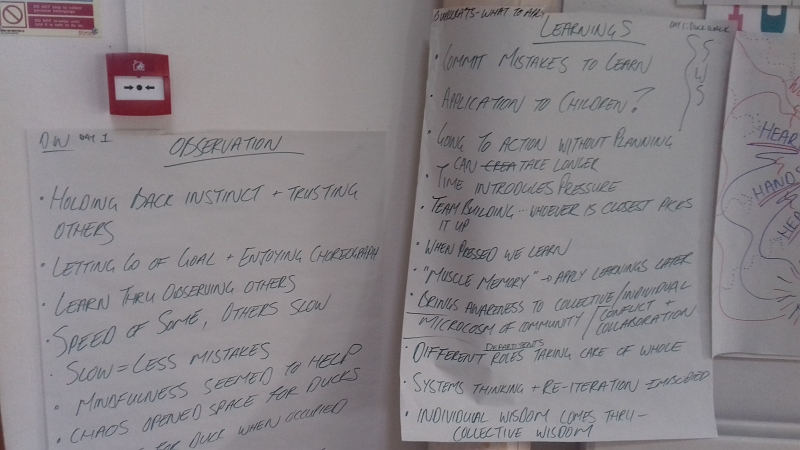 DW DAY 1
OBSERVATION
• HOLDING BACK INSTINCT + TRUSTING
OTHERS
• LETTING GO OF GOAL + ENJOYING CHOREOGRAPH
• LEARN THRU OBSERVING OTHERS
• SPEED OF SOME, OTHERS SLOW
• SLOW = LESS MISTAKES
• MINDFULNESS SEEMED TO HELP
• CHAOS OPENED SPACE FOR DUCKS
FOR DUCK WHEN OCCUPIED
- WHAT TO
LEARNINGS
DAY 1:
• COMMIT MISTAKES TO LEARN
• APPLICATION TO CHILDREN?
• GOING TO ACTION WITHOUT PLANNING
CAN CREA TAKE LONGER
• TIME INTRODUCES PRESSURE
• TEAM BUILDING... WHOEVER IS CLOSEST PICKS
IT UP
• WHEN PRESSED WE LEARN
• "MUSCLE MEMORY" → APPLY LEARNINGS LATER
• BRINGS AWARENESS TO COLLECTIVE/INDIVIDUAL
MICROCOSM OF COMMUNITY / CONFLICT +
COLLABORATION
DEPARTMENTS
• DIFFERENT ROLES TAKING CARE OF WHOLE
• SYSTEMS THINKING + RE-ITERATION EMBODIED
• INDIVIDUAL WISDOM COMES THRU -
COLLECTIVE WISDOM
HEAR
HANDS
HEA